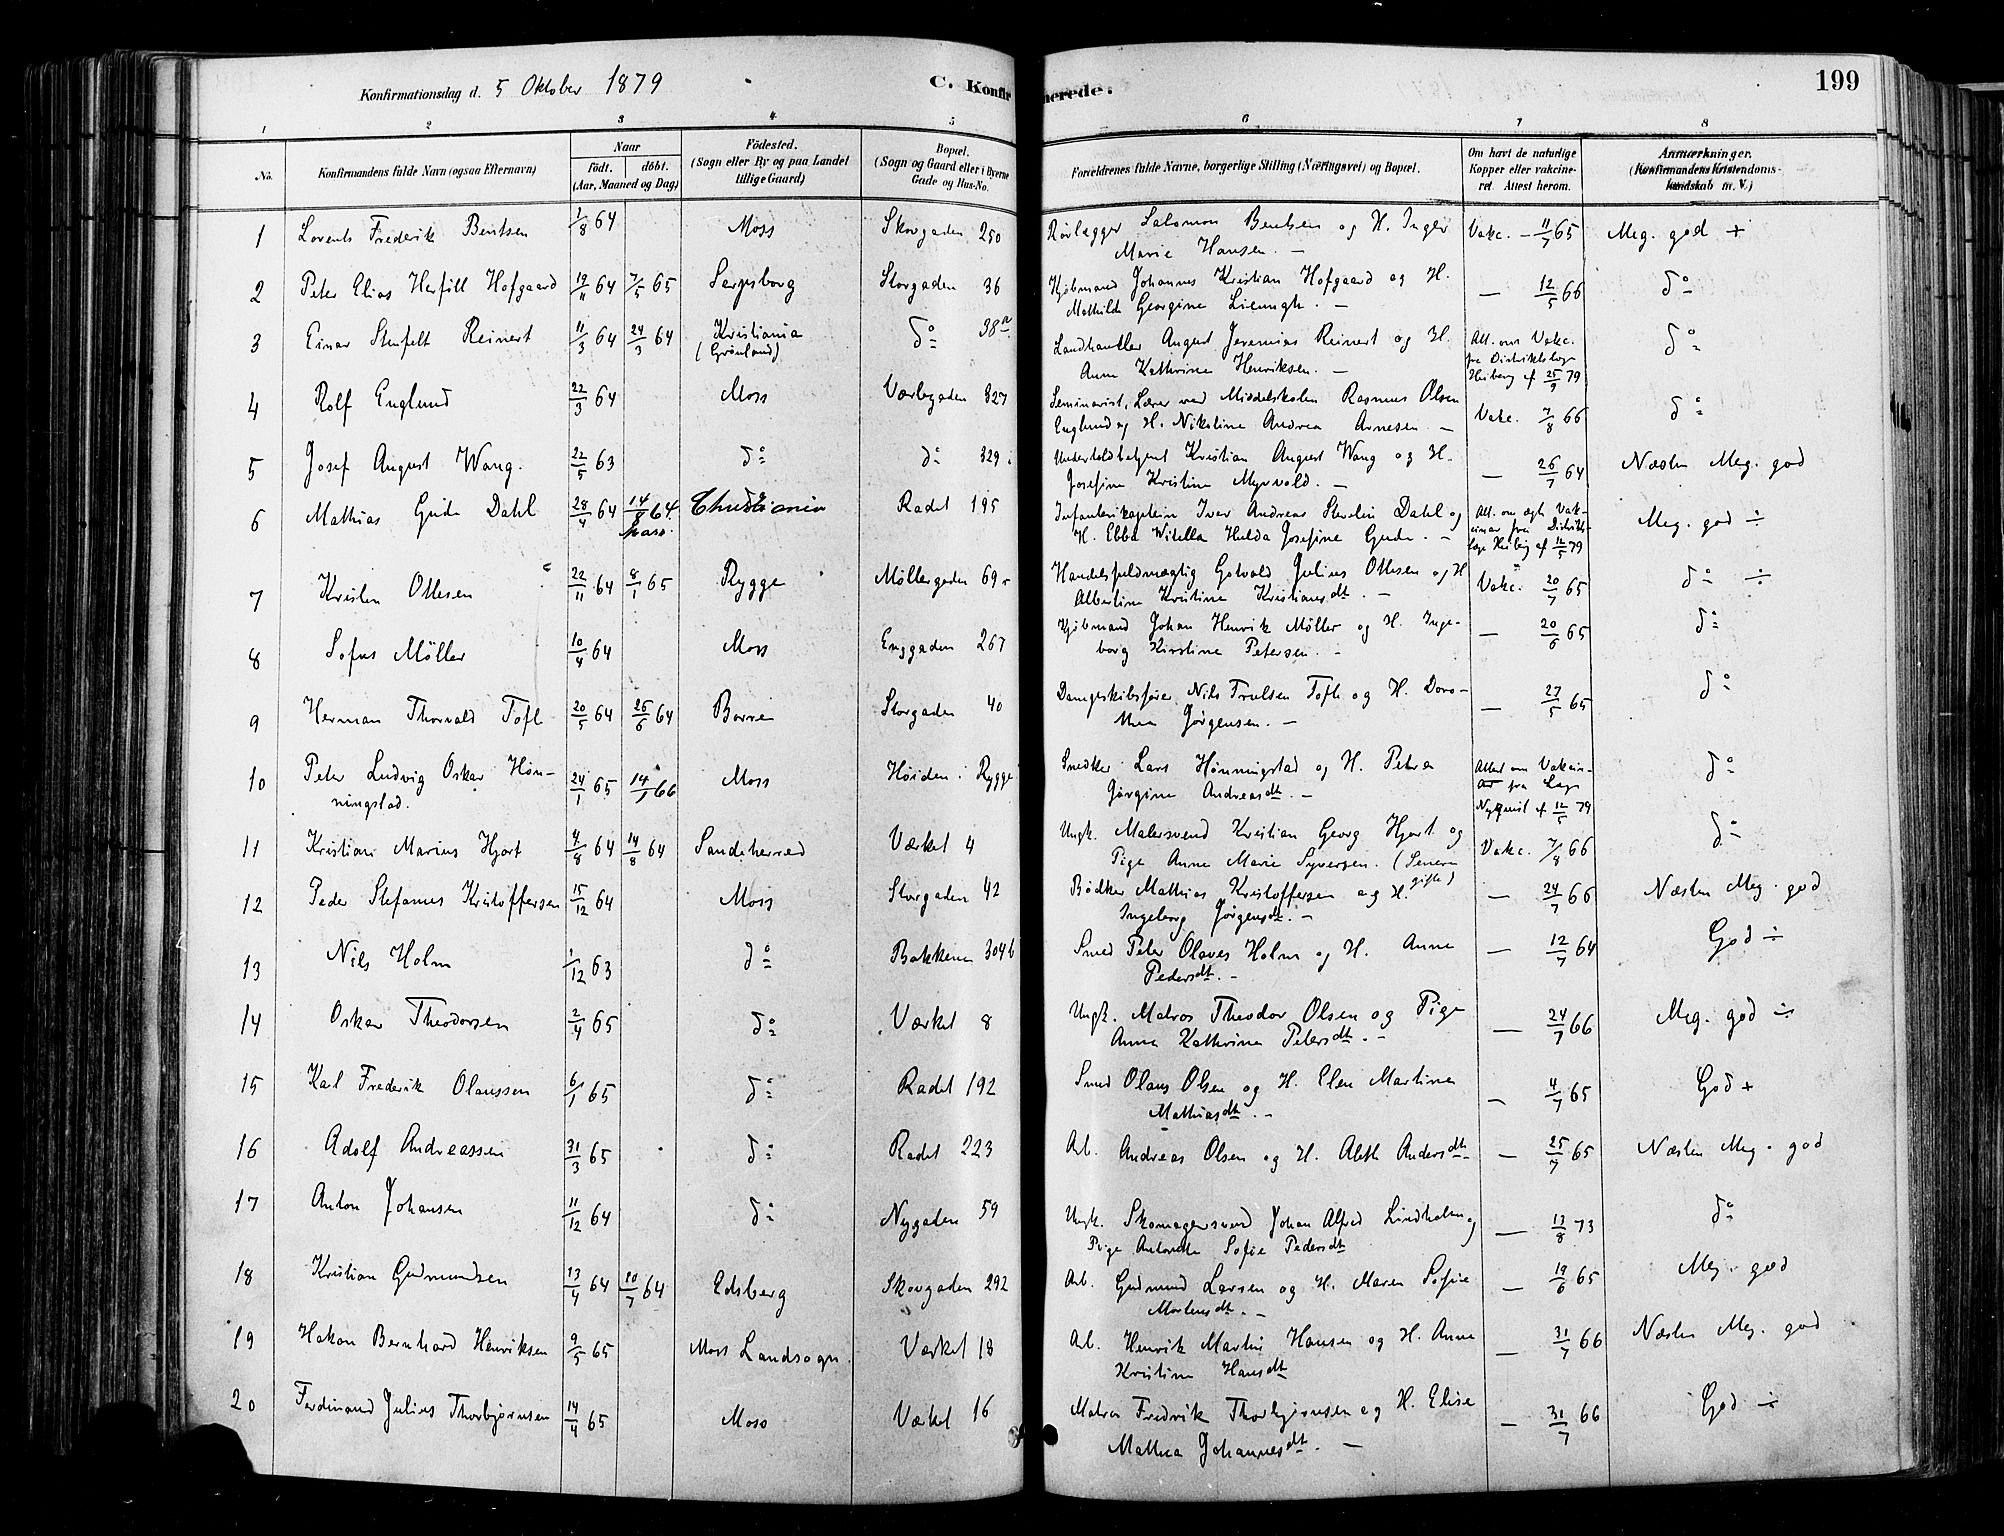 Konfirmationsdag d. 5 Oktober 1879
C. Konfirmerede.
199
1 2 3 4 5 6 7 8
No.
Konfirmandens fulde Navn (ogsaa Efternavn)
Naar
Födt. döbt.
(Aar, Maaned og Dag)
Födested.
(Sogn eller By og paa Landet
tillige Gaard)
Bopæl.
(Sogn og Gaard eller i Byerne
Gade og Hus-No.
Forældrenes fulde Navne, borgerlige Stilling (Næringsvei) og Bopæl.
Om havt de naturlige
Kopper eller vakcine-
ret. Attest herom.
Anmærkninger.
(Konfirmandens Kristendoms-
kundskab m. V.)
1 Lorents Frederik Bentsen 1/8 64 Moss Skovgaden 250 Rørlægger Salomon Bentsen og H. Inger
Marie Hansen. — Vakc. — 11/7 65 Meg. god +
2 Peter Elias Hofgaard 19/11 64 7/5 65 Sarpsborg Storgaden 36 Kjøbmand Johannes Kristian Hofgaard og H.
Mathilde Georgine — — 12/5 66 do
3 Einar Reinert 11/3 64 24/3 64 Kristiania
(Grønland) do 38a Landhandler August Jeremias Reinert og H.
Anna Kathrine Henriksen. — Att. om Vakc.
fra Distriktslæge
Heiberg af 25/9 79 do
4 Rolf Englund 22/3 64 Moss Værlegaden 327 Seminarist, Lærer ved Middelskolen Rasmus Olsen
Englund og H. Nikoline Andrea Arnesen — Vakc. 7/8 66 do
5 Josef August Wang. 22/5 63 do do 329 Undertoldbetjent Kristian August Wang og H.
Josefine Kristine Myrvold. — — 26/7 64 Næsten Meg. god
6 Mathias Gude Dahl 28/4 64 14/8 64 Christiania Radet 195 Infanterikaptein Iver Andreas Dahl og
H. Ebba Hulda Josefine Gude. — Att. om ægte Vak-
ciner fra Distrikts-
læge Heiberg af 12/5 79 Meg. god ÷
7 Kristen Ottesen 22/11 64 8/1 65 Rygge Møllergaden 69 Handelsfuldmægtig Gotvald Julius Ottesen og H
Albertine Kristine Kristiansdt. — Vakc. 20/7 65 do ÷
8 Sofus Möller 10/4 64 Moss Enggaden 267 Kjøbmand Johan Henrik Møller og H. Inge-
borg Kirstine Petersen. — — 20/6 65 do
9 Herman Thorvald Toft 20/5 64 26/6 64 Borre Storgaden 40 Dampskibsfører Nils Trulsen Toft og H. Doro-
thea Jørgensen. — — 27/5 65 do
10 Peter Ludvig Oskar Høn-
ningstad. 24/1 65 14/1 66 Moss Høiden i Rygge Snedker Lars Hønningstad og H. Petra
Jørgine Andreasdt. — Attest om Vakcin-
fra Læge
Nyquist af 12/5 79 do
11 Kristian Marius Hjort 4/8 64 14/8 64 Sandeherred Værket 4 Ungk. Malersvend Kristian Georg Hjort og
Pige Anne Marie Syversen. (Senere
gifte) Vakc. 7/8 66 do
12 Peder Stefanus Kristoffersen 15/12 64 Moss Storgaden 42 Bødker Mathias Kristoffersen og H.
Ingeborg Jørgensdt. — — 24/7 66 Næsten Meg. god
13 Nils Holm 1/12 63 do Bakkene 304b Smed Peter Olaves Holm og H. Anne
Pedersdt. — — 12/7 64 God ÷
14 Oskar Theodorsen 2/4 65 do Værket 8 Ungk. Matros Theodor Olsen og Pige
Anna Kathrine Petersdt. — — 24/7 66 Meg. god ÷
15 Karl Frederik Olaussen 6/1 65 do Radet 192 Smed Olaus Olsen og H. Elen Martine
Mathiasdt. — — 4/7 65 God +
16 Adolf Andreassen 31/3 65 do Radet 223 Arb. Andreas Olsen og H. Aleth Andersdt. — 25/7 65 Næsten Meg. god
17 Anton Johansen 11/12 64 do Nygaden 59 Ungk. Skomagersvend Johan Alfred Lindholm og
Pige Antonette Sofie Pedersdt — 13/8 73 do
18 Kristian Gudmundsen 13/4 64 10/7 64 Edsberg Skovgaden 292 Arb. Gudmund Larsen og H. Maren Sofie
Mortensdt. — — 19/6 65 Meg. god
19 Hakon Bernhard Henriksen 9/5 65 Moss Landsogn. Værket 18 Arb. Henrik Martin Hansen og H. Anne
Kristine Hansdt — 31/7 66 Næsten Meg. god
20 Ferdinand Julius Thorbjørnsen 14/4 65 Moss Værket 16 Matros Fredrik Thorbjørnsen og H. Elise
Mathea Johannesdt. — — 31/7 66 God ÷